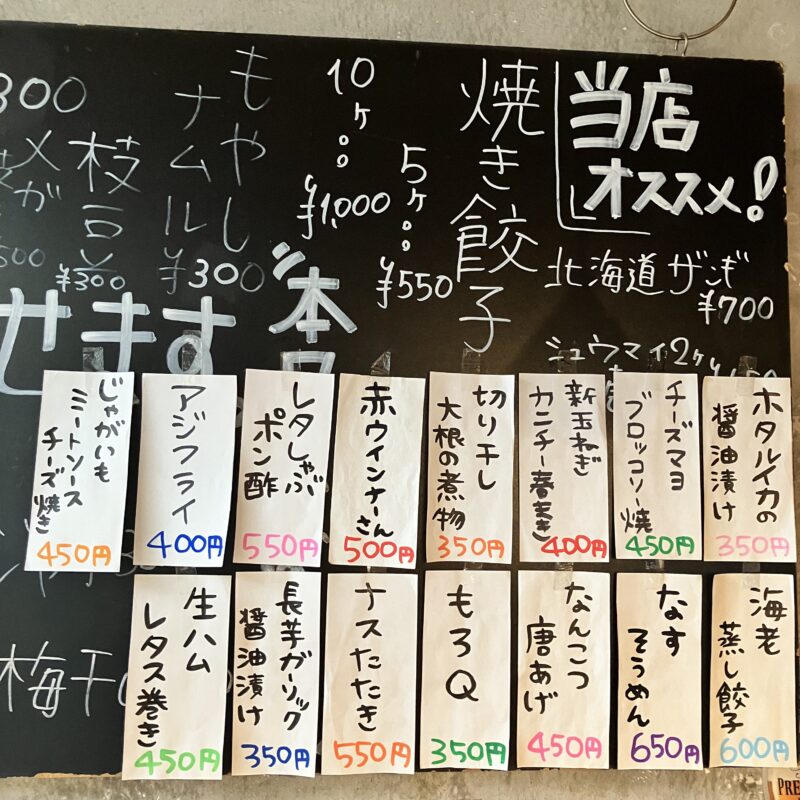 当店
オススメ!
焼き餃子
5ヶ
¥550
10ヶ
¥1,000
北海道ザンギ
¥700
シュウマイ2ヶ
もやし
ナムル
¥300
枝豆
¥300
300
500
本日
せます。
梅干
ホタルイカの
醤油漬け
350円
チーズマヨ
ブロッコリー焼
450円
新玉ねぎ
カニチー春まき
400円
切り干し
大根の煮物
350円
赤ウインナーさん
500円
レタしゃぶ
ポン酢
550円
アジフライ
400円
じゃがいも
ミートソース
チーズ焼き
450円
海老
蒸し餃子
600円
なす
そうめん
650円
なんこつ
唐あげ
450円
もろQ
350円
ナスたたき
550円
長芋ガーリック
醤油漬け
350円
生ハム
レタス巻き
450円